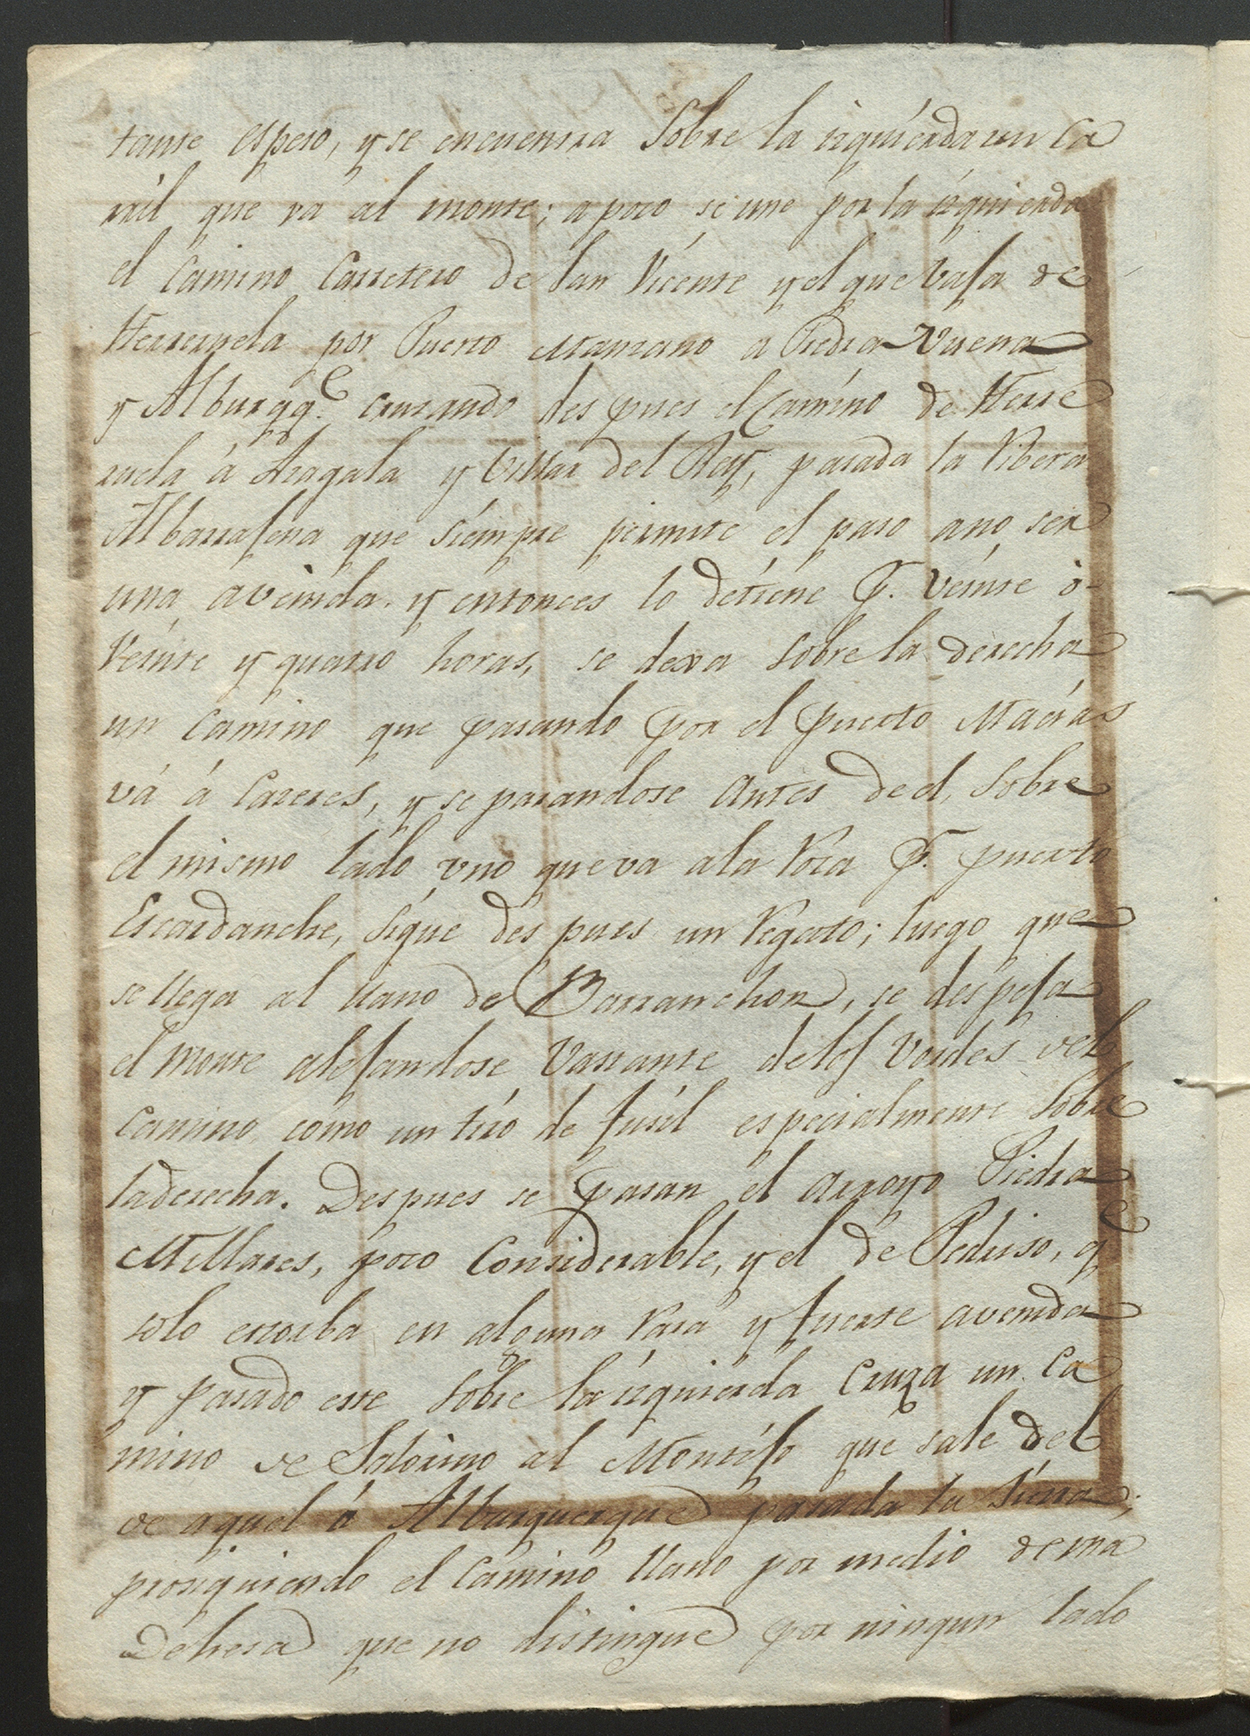 tante espeso, y se encuentra sobre la izquierda un ca
rril que va al monte; a poco se une por la izquierda
el Camino Carretero de San Vicente y el que vaja de
Herreruela por Puerto Manzano a Piedra Vuena
y Alburqq.e cruzando despues el Camino de Herre
ruela á Azagala y Villar del Rey, pasada la Rivera
Albarrajena que siempre permite el paso ano ser
una avenida y entonces lo detiene p.r veinte ò
Veinte y quatro horas, se dexa sobre la derecha
un Camino que pasando por el puerto Macias
vá á Caceres, y separandose antes de el, sobre
el mismo lado uno que va ala Roca p.r puerto
Escardanche, sigue des pues un Regato; luego que
se llega al llano de Barranchon, se despeja
el Monte alejandose Vastante delos Vordes del
Camino como un tiro de fusil especialmente sobre
la derecha. Despues se pasan el arroyo Piedra
Millares, poco Considerable, y el de Pedriso, q.e
solo estorba en alguna Rara y fuerte avenida
y pasado este sobre la izquierda Cruza un Ca
mino de Salorino al Montijo que sale del
de aquel á Alburquerque pasada la Sierra;
prosiguiendo el Camino llano por medio de una
Dehesa que no distingue por ningun lado